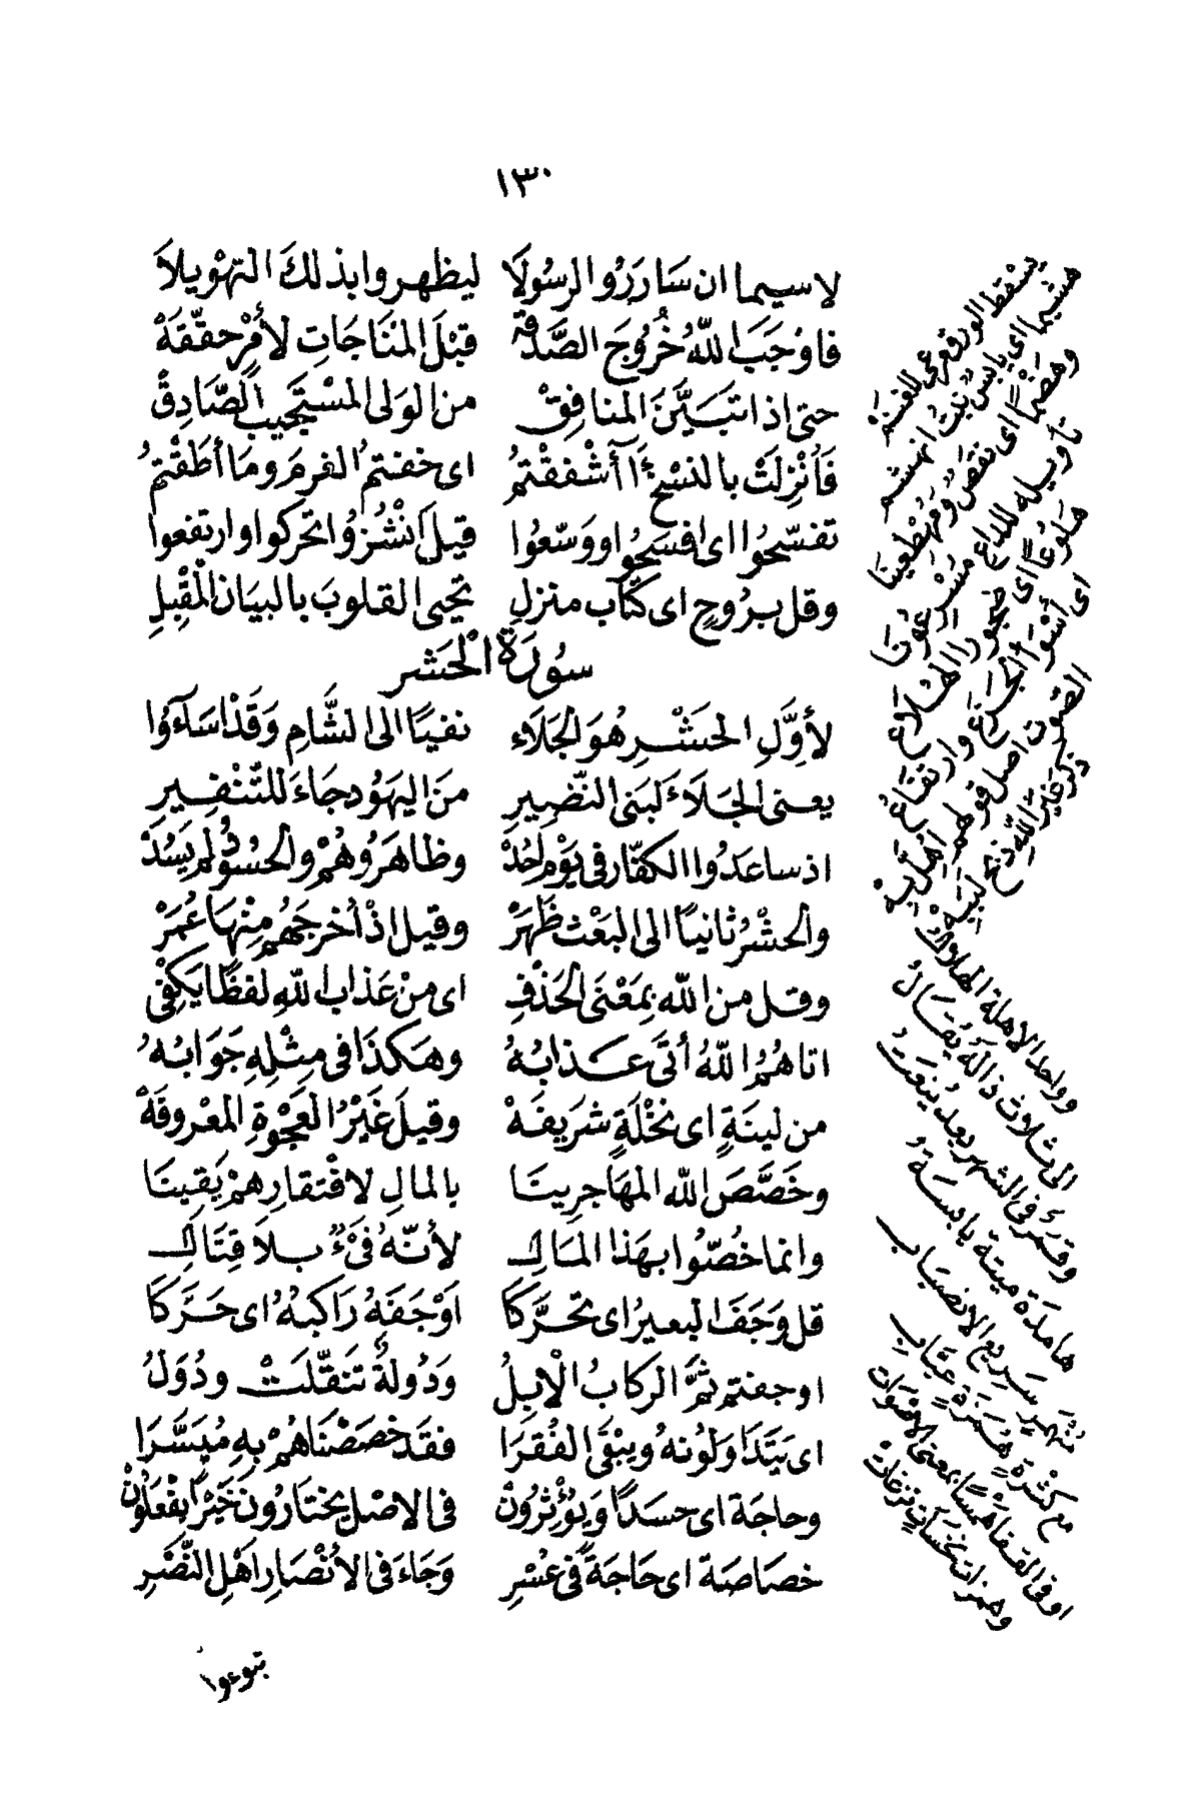 ١٣٠
لاسيما ان سَارَرُوا الرسُولَا ليظهروا بذلكَ التهْويلاَ
فاوْجَبَ اللّهُ خُرُوجَ الصَّدقة قبْلَ المنَاجَاتِ لأمْرٍ حقّقَهْ
حتى اذا تبَيَّنَ المنافِقْ من الوَلى المسْتجيب الصَّادِقْ
فَاُنْزِلَتْ بالنسْخِ أَأَشْفقْتمُ اى خفتمُ الغرمَ ومَا أطَقْتمُ
تفسّحُوا اى افسَحُوا ووَسّعُوا قيلَ انْشُزوُا تحركوا وارتفعوا
وقل بروُحٍ اى كتاب منزلِ تحيى القلوبَ بالبيَان الْمقْبِلِ
سُورَة الْحَشر
لأوَّلِ الحَشْرِ هُوَ الجَلَاء نفيًا الى الشَّامِ وَقَدْ اسَآءوُا
يعنى الجَلَاءَ لبَنى النّضِيرِ منَ اليَهُود جَاءَ للتّنْفِيرِ
اذ ساعَدُوا الكفّار فى يَوْم اُحُدْ وظاهَرُوهُمْ والحُسُودُ لم يَسُدْ
والحشْرُ ثانيًا الى البَعْث ظَهَرْ وقيل اذْ أخرجَهُم مِنْهَا عُمَرْ
وقل من الله بمَعْنَى الحَذْفِ اى منْ عَذاب اللّهِ لفظًا يَكفْى
اتاهُمُ اللّهُ أتَى عذابُهُ وهَكذَا فى مِثْلِهِ جَوَابُهُ
من لينَةٍ اى نَخْلَةٍ شرَيفَهْ وقيلَ غَيْرُ العَجْوَةِ المعْروفَهْ
وخَصَّصَ الله المهَاجرِينَا بالمالِ لافْتقارِهمْ يَقينَا
وانما خُصّوا بهَذا المَالِ لأنّهُ فىْءٌ بلاَ قِتَالِ
قل وَجَفَ البعيرُ اى تحرَّكَا اَوْجَفَهُ رَاكبُهُ اى حَرَّكَا
اوجفتم ثمَّ الركابُ الْابِلُ وَدُولةٌ تنَقّلَتْ ودُوَلُ
اى يَتَدَاوَلُونهُ ويبْقَى الفُقرَا فقَد خصَصْنَاهُمْ بهِ مُيَسَّرَا
وحاجَة اى حسَدًا وَيُؤْثرونْ فى الاصْل يختَارُونَ خَيْرًا يفْعَلوُنْ
خصَاصَة اى حَاجَةً فى عُسْرِ وَجَاءَ فى الأنْصَارِ اَهْلِ النّصْرِ
تبوءوا
يسْقط الورق رعى للغنمْ
هشيما اى يابس نبتُ انهشم
وهضْمًا اى نقصٌ ومُهْطِعينَا
تأويله للداع مسْرعُونَا
هلوُعًا اى ضجورا الهلَاعُ
اى أسْوَأ الْجَزَعَ وارتفاعُ
الصَّوت اصل قولهم اهلّ بِهْ
ذكر غير اللّه ذبح لبيَهْ
وواحد الاهلة الهلاَلُ
الى ثلاث ذا لَهُ يُقَالُ
وقمرٌ فى الشهر بعد يُنعَتُ
هامدَة ميتة يابسَة
منْهَمر سَريع الانصبَاب
مع كثْرة هُمَزةٍ عيَّابِ
او فى القفا همْسًا بمعنى الاصْوَات
وهمزات نخسات نزغاتْ